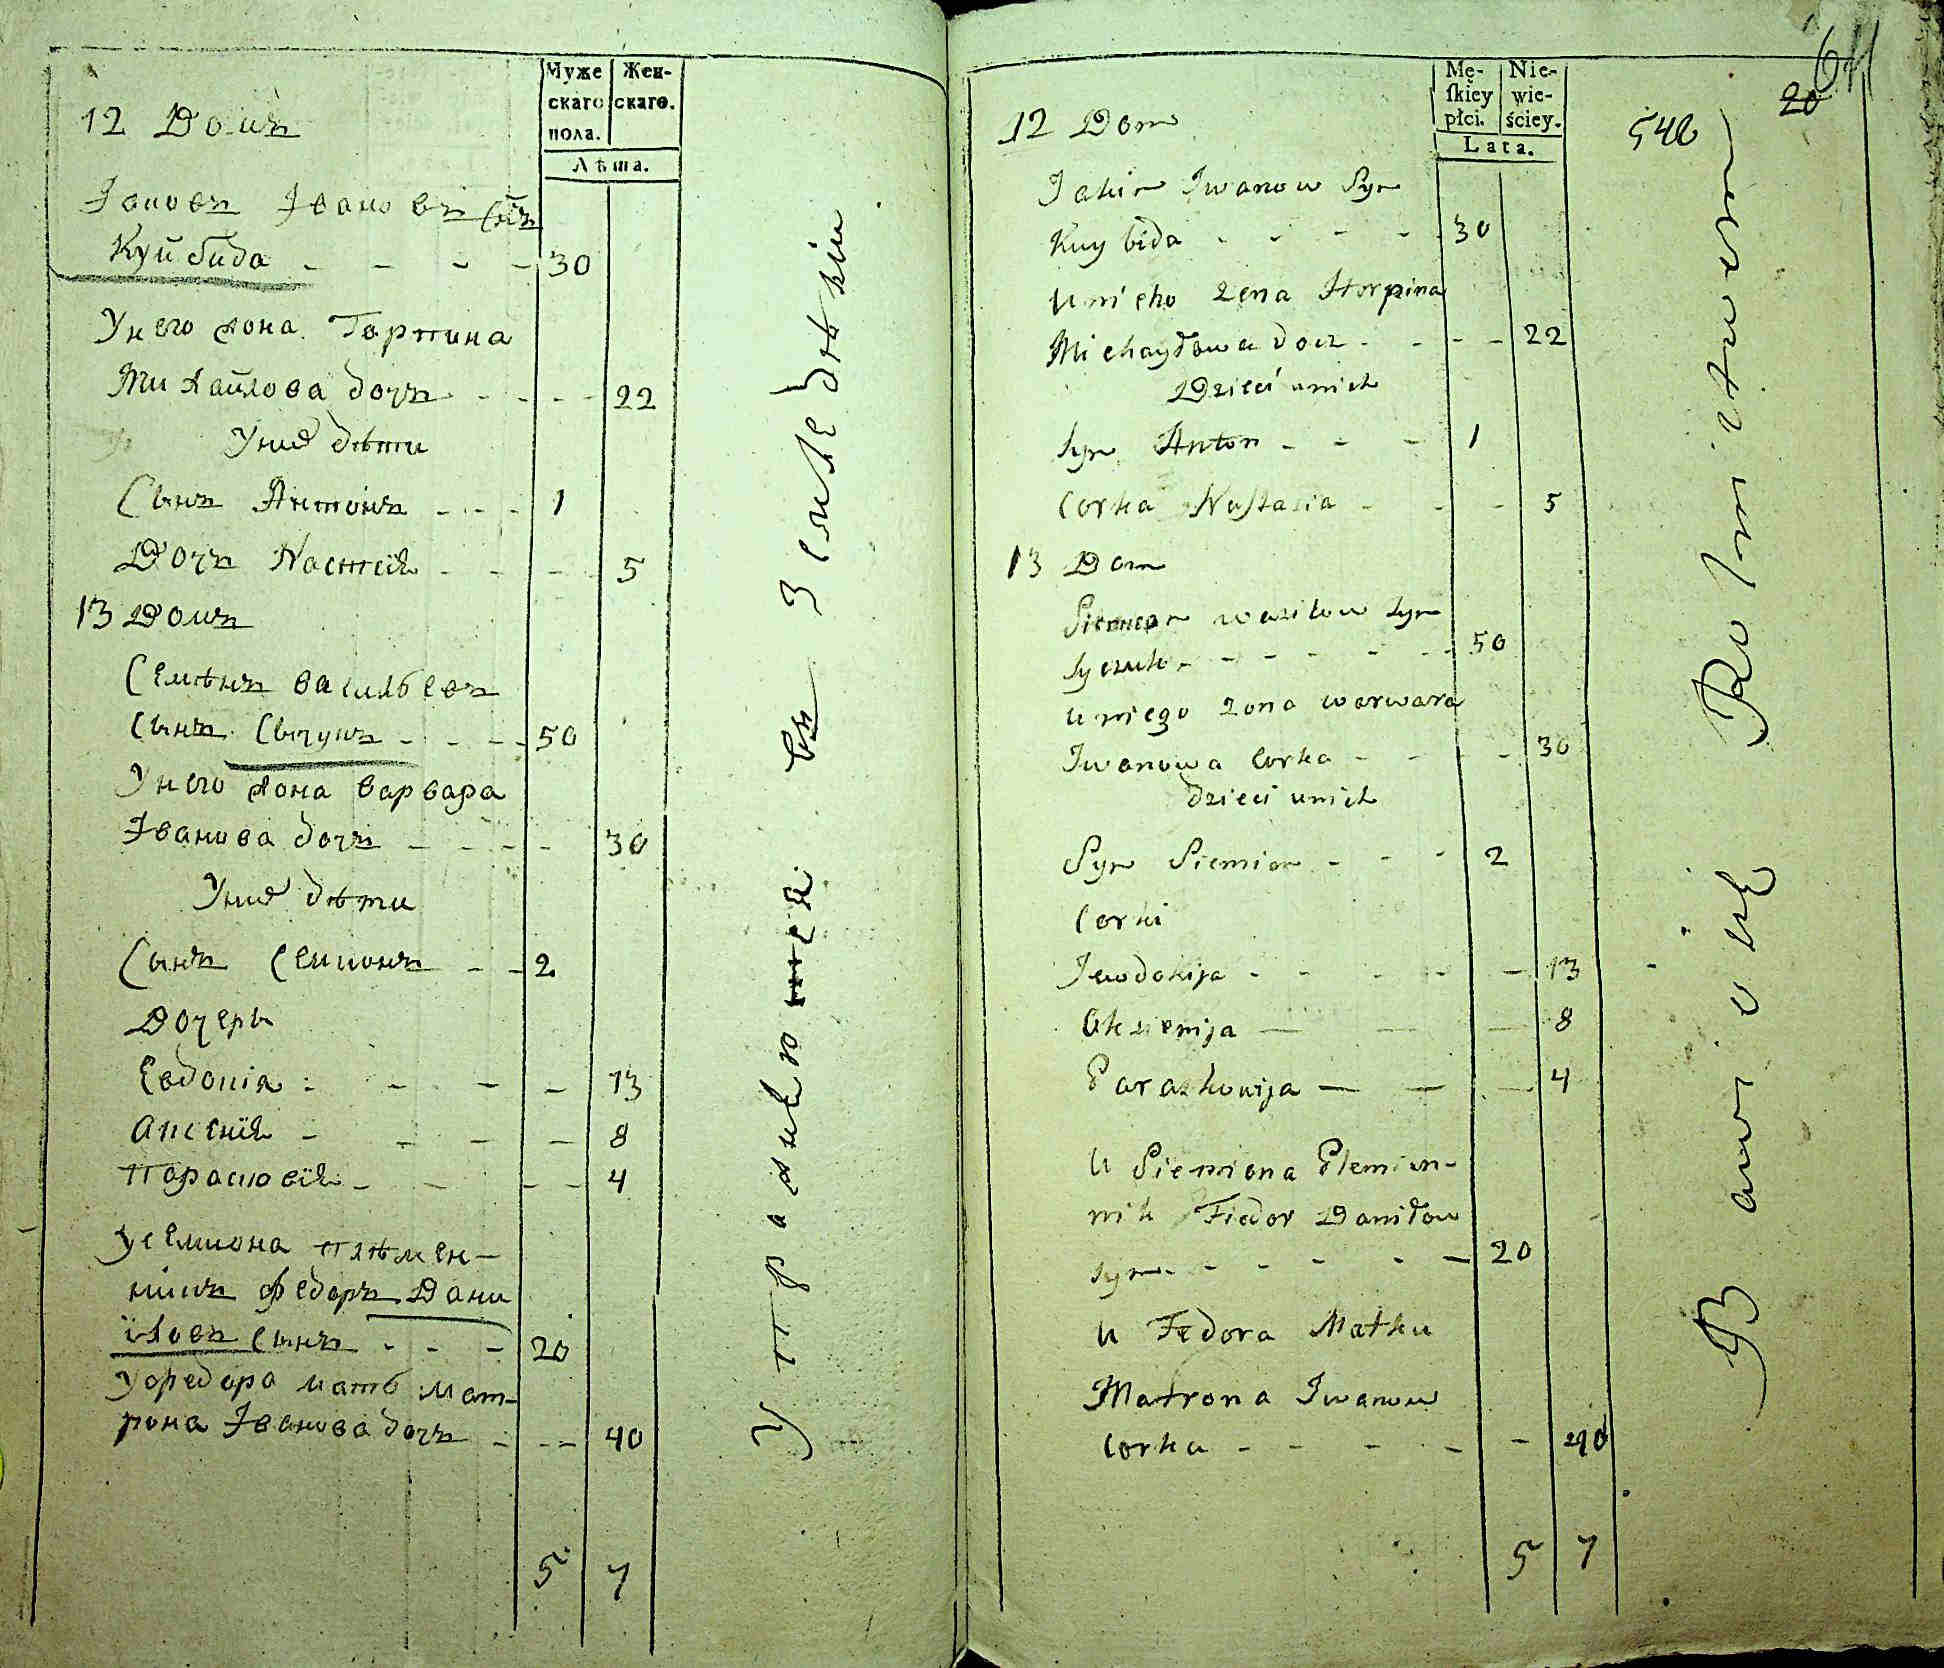 Муже
скаго
пола.
Жен-
скаго.
Лѣта.
12 Домъ
Іаковъ Івановъ Сн҃ъ
Куйбида - - - - 30
Унего жона Горпина
Михайлова дочъ - - - - 22
Уних дѣти
Сынъ Антонъ - - - 1
Дочъ Настсія - - - - 5
13 Домъ
Семѣнъ василбевъ
Сынъ Сычукъ - - - - 50
Унего жона варвара
Іванова дочъ - - - - 30
Уних дѣти
Сынъ Семионъ - - 2
Дочеры
Евдокія - - - - 13
Аксенія - - - - 8
Парасковія - - - - 4
Усемиона племѣн-
никъ Федоръ Дани
іловъ сынъ - - - 20
Уфедора матб мат-
рона Іванова дочъ - - - 40
5 7
Упражнюшся въ Земледѣліи
Mę-
ſkiey
płci.
Nie-
wie-
ściey.
Lata.
542
20
64
12 Dom
Jakim Iwanow Syn
Kuybida - - - - - 30
Unieho żena Horpina
Michayłowa docz - - - - 22
Dzieci unich
Syn Anton - - - 1
Corka Nastasia - - - 5
13 Dom
Siemion wasilow Syn
Syczuk - - - - - - 50
Uniego żona warwara
Iwanowa Corka - - - - 30
dzieci unich
Syn Siemion - - - 2
Corki
Jewdokija - - - - - 13
Oksienija - - - 8
Paraskowija - - - 4
U Siemiona Plemien-
nik Fiedor Daniłow
Syn - - - - - - 20
U Fedora Matka
Matrona Iwanow
Corka - - - - - - 40
5 7
Bawi się Rolnictwem